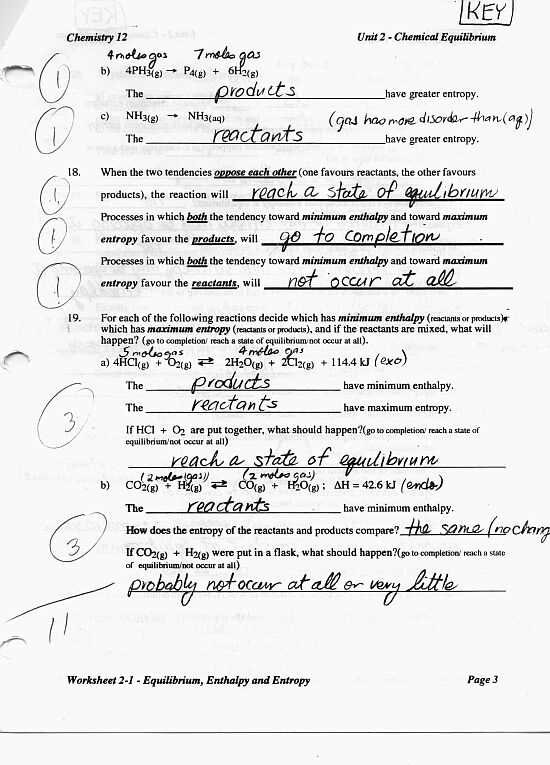 KEY
Chemistry 12 Unit 2 - Chemical Equilibrium
4 moles gas 7 moles gas
1 b) 4PH3(g) → P4(g) + 6H2(g)
The products have greater entropy.
c) NH3(g) → NH3(aq) (gas has more disorder than (aq))
1 The reactants have greater entropy.
18. When the two tendencies oppose each other (one favours reactants, the other favours
1 products), the reaction will reach a state of equilibrium
Processes in which both the tendency toward minimum enthalpy and toward maximum
1 entropy favour the products, will go to completion
Processes in which both the tendency toward minimum enthalpy and toward maximum
1 entropy favour the reactants, will not occur at all
19. For each of the following reactions decide which has minimum enthalpy (reactants or products),
which has maximum entropy (reactants or products), and if the reactants are mixed, what will
happen? (go to completion/ reach a state of equilibrium/not occur at all).
5 moles gas 4 moles gas
a) 4HCl(g) + O2(g) ⇄ 2H2O(g) + 2Cl2(g) + 114.4 kJ (exo)
The products have minimum enthalpy.
3 The reactants have maximum entropy.
If HCl + O2 are put together, what should happen?(go to completion/ reach a state of
equilibrium/not occur at all)
reach a state of equilibrium
(2 moles (gas)) (2 moles gas)
b) CO2(g) + H2(g) ⇄ CO(g) + H2O(g) ; ΔH = 42.6 kJ (endo)
The reactants have minimum enthalpy.
How does the entropy of the reactants and products compare? the same (no chang
3 If CO2(g) + H2(g) were put in a flask, what should happen?(go to completion/ reach a state
of equilibrium/not occur at all)
probably not occur at all or very little
11
Worksheet 2-1 - Equilibrium, Enthalpy and Entropy Page 3